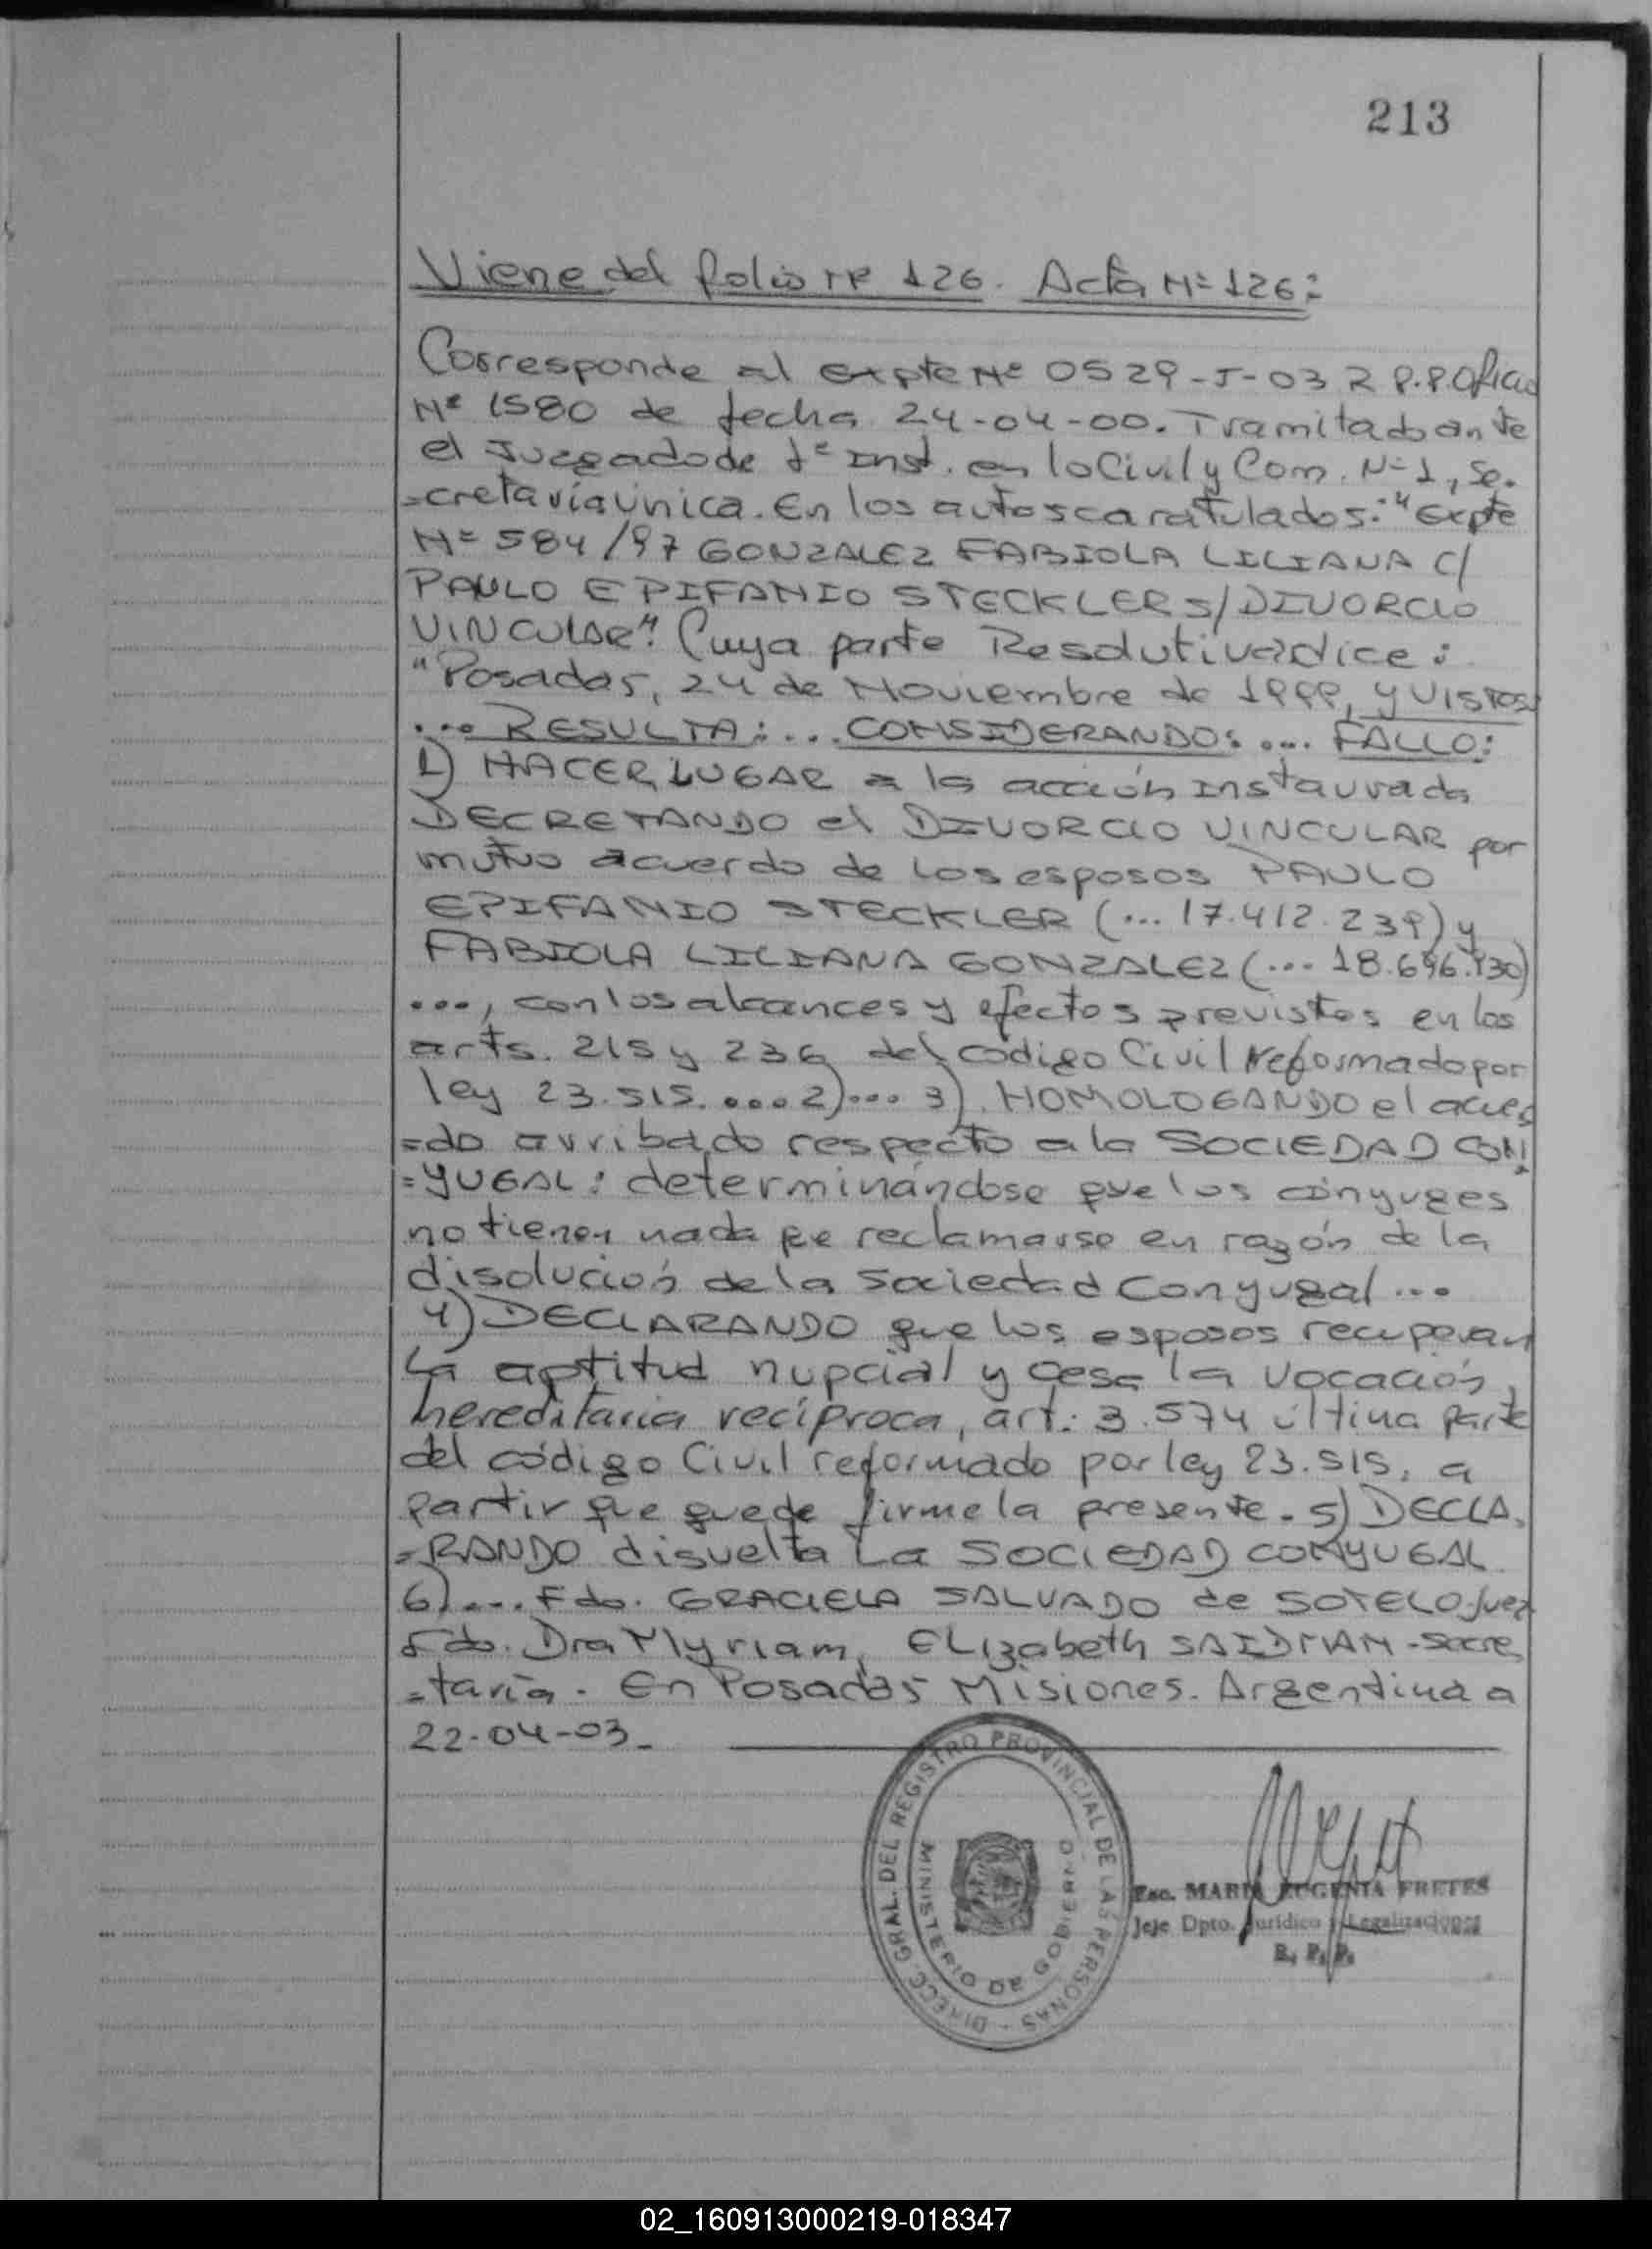 213
Viene del folio Nº 126. Acta Nº 126:
Corresponde al expte Nº 0529-J-03 R.P.P. Oficio
Nº 1580 de fecha 24-04-00. Tramitado ante
el Juzgado de 1º Inst. en lo Civil y Com. Nº 1, Se.
=cretaría única. En los autos caratulados: "Expte
Nº 584/97 GONZALEZ FABIOLA LILIANA C/
PAULO EPIFANIO STECKLER S/DIVORCIO
VINCULAR". Cuya parte Resolutiva dice:
"Posadas, 24 de Noviembre de 1999, y VISTOS:
... RESULTA: ... CONSIDERANDO: .... FALLO:
1) HACER LUGAR a la acción instaurada
DECRETANDO el DIVORCIO VINCULAR por
mutuo acuerdo de los esposos PAULO
EPIFANIO STECKLER (... 17.412.239) y
FABIOLA LILIANA GONZALEZ (... 18.696.930)
..., con los alcances y efectos previstos en los
arts. 215 y 236 del código Civil reformado por
ley 23.515. .... 2)... 3). HOMOLOGANDO el acuer
=do arribado respecto a la SOCIEDAD CON
=YUGAL: determinándose que los cónyuges
no tienen nada que reclamarse en razón de la
disolución de la Sociedad Conyugal ...
4) DECLARANDO que los esposos recuperan
La aptitud nupcial y cesa la vocación
hereditaria recíproca, art: 3.574 última parte
del código Civil reformado por ley 23.515, a
partir que quede firme la presente. 5) DECLA
=RANDO disuelta La SOCIEDAD CONYUGAL
6).... Fdo. GRACIELA SALVADO de SOTELO-Juez
Fdo. Dra Myriam, ELizabeth SAIDMAN-Secre
=taría. En Posadas Misiones. Argentina a
22-04-03.
DIRECC. GRAL. DEL REGISTRO PROVINCIAL DE LAS PERSONAS -
MINISTERIO DE GOBIERNO
Esc. MARIA EUGENIA FRETES
Jefe Dpto. Jurídico y Legalizaciones
R. P. P.
02_160913000219-018347